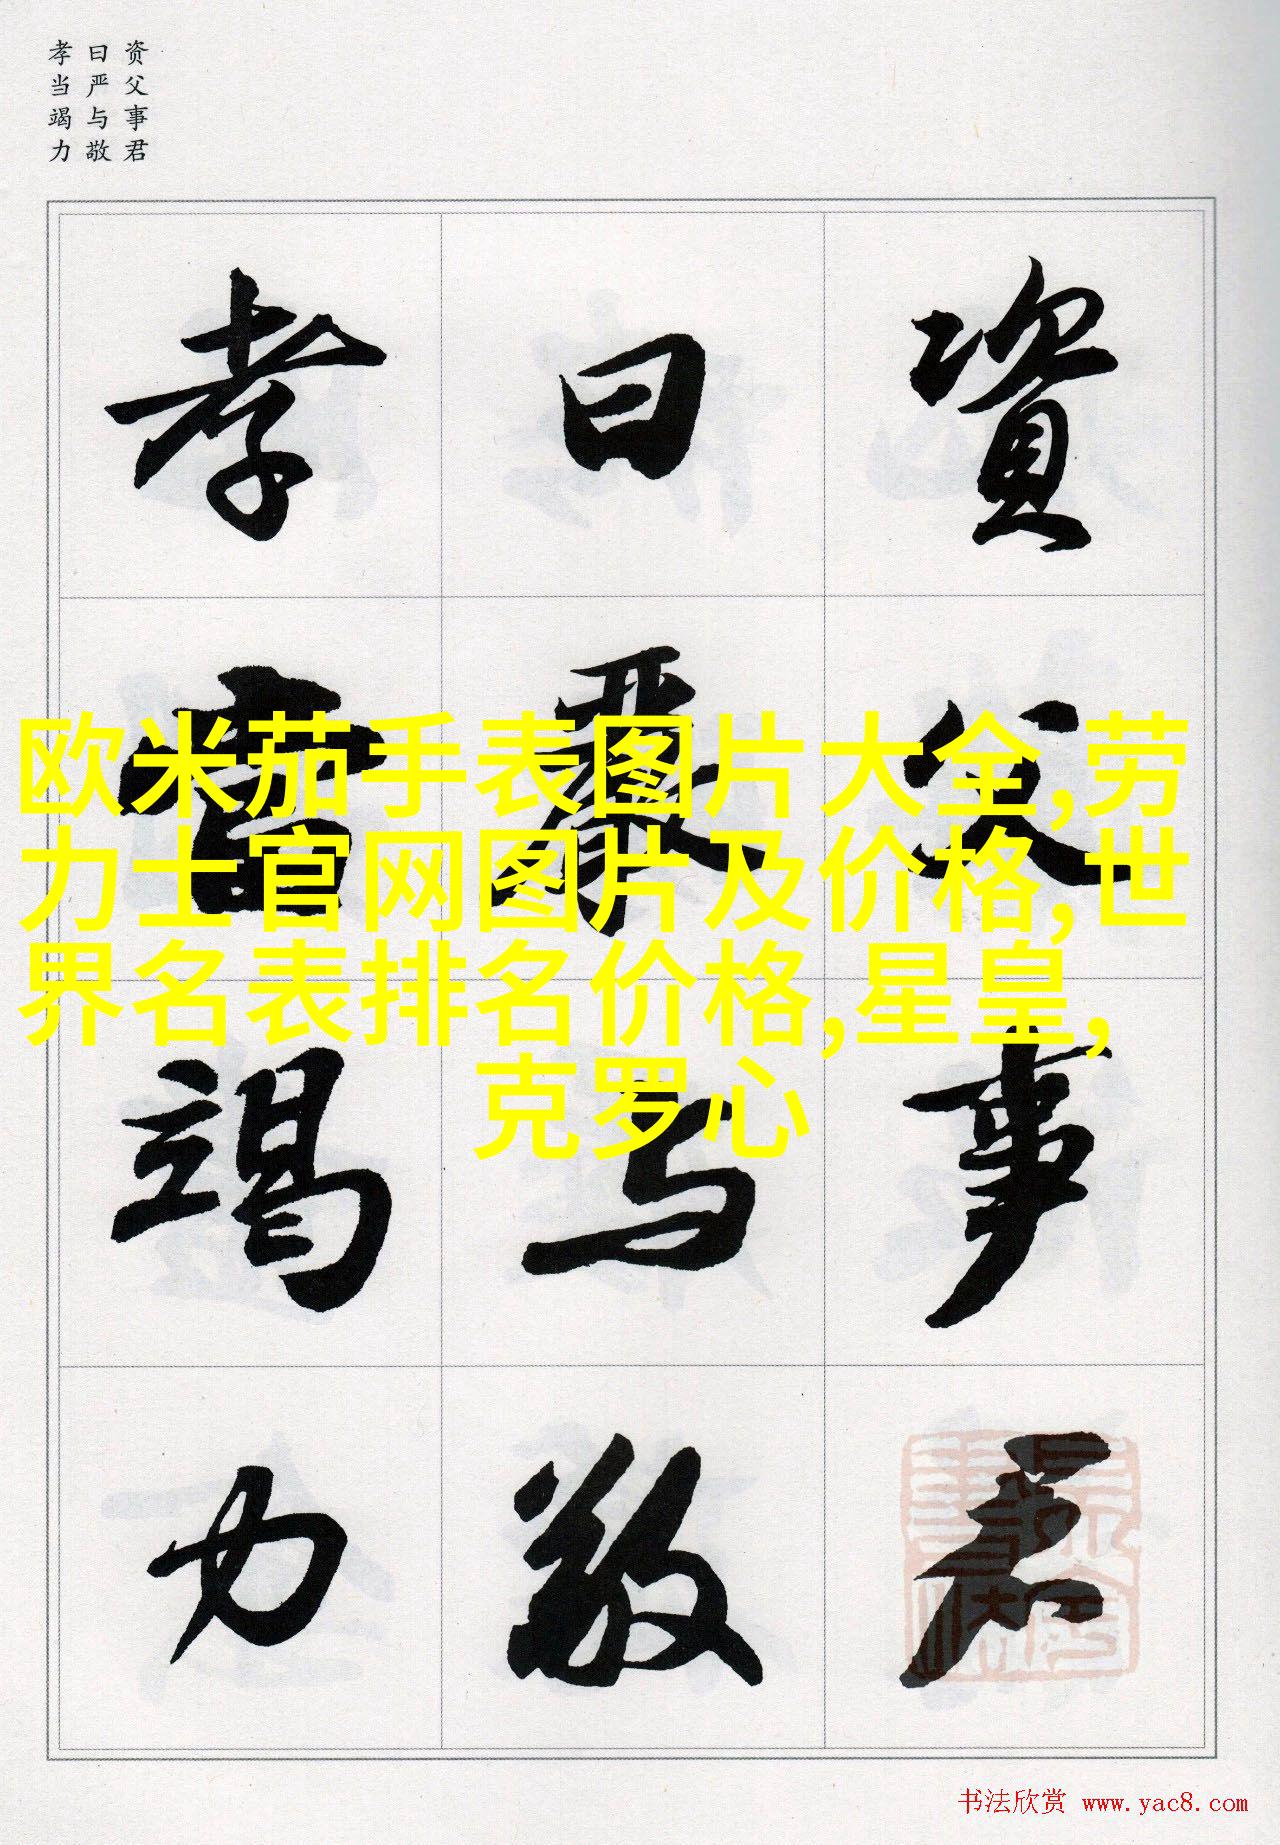 资父事君
曰严与敬
孝当竭力
資父事君
曰嚴与敬
孝當竭力
欧米茄手表图片大全,劳
力士官网图片及价格,世
界名表排名价格,星皇,
克罗心
书法欣赏 www.yac8.com